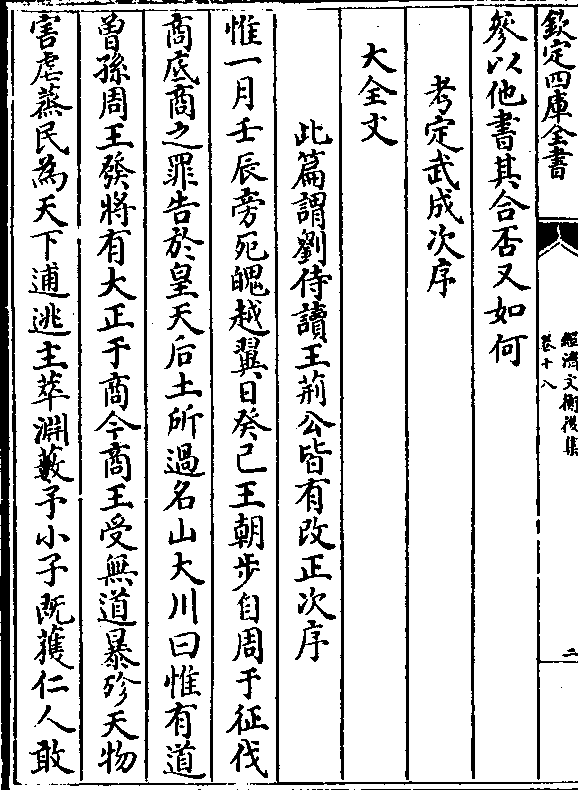 欽定四庫全書
經濟文衡後集
卷十八
二
參以他書其合否又如何
考定武成次序
大全文
此篇謂劉侍讀王荊公皆有改正次序
惟一月壬辰旁死魄越翼日癸巳王朝步自周于征伐
商底商之罪告於皇天后土所過名山大川曰惟有道
曽孫周王發將有大正于商今商王受無道暴殄天物
害虐蒸民為天下逋逃主萃淵藪予小子既獲仁人敢